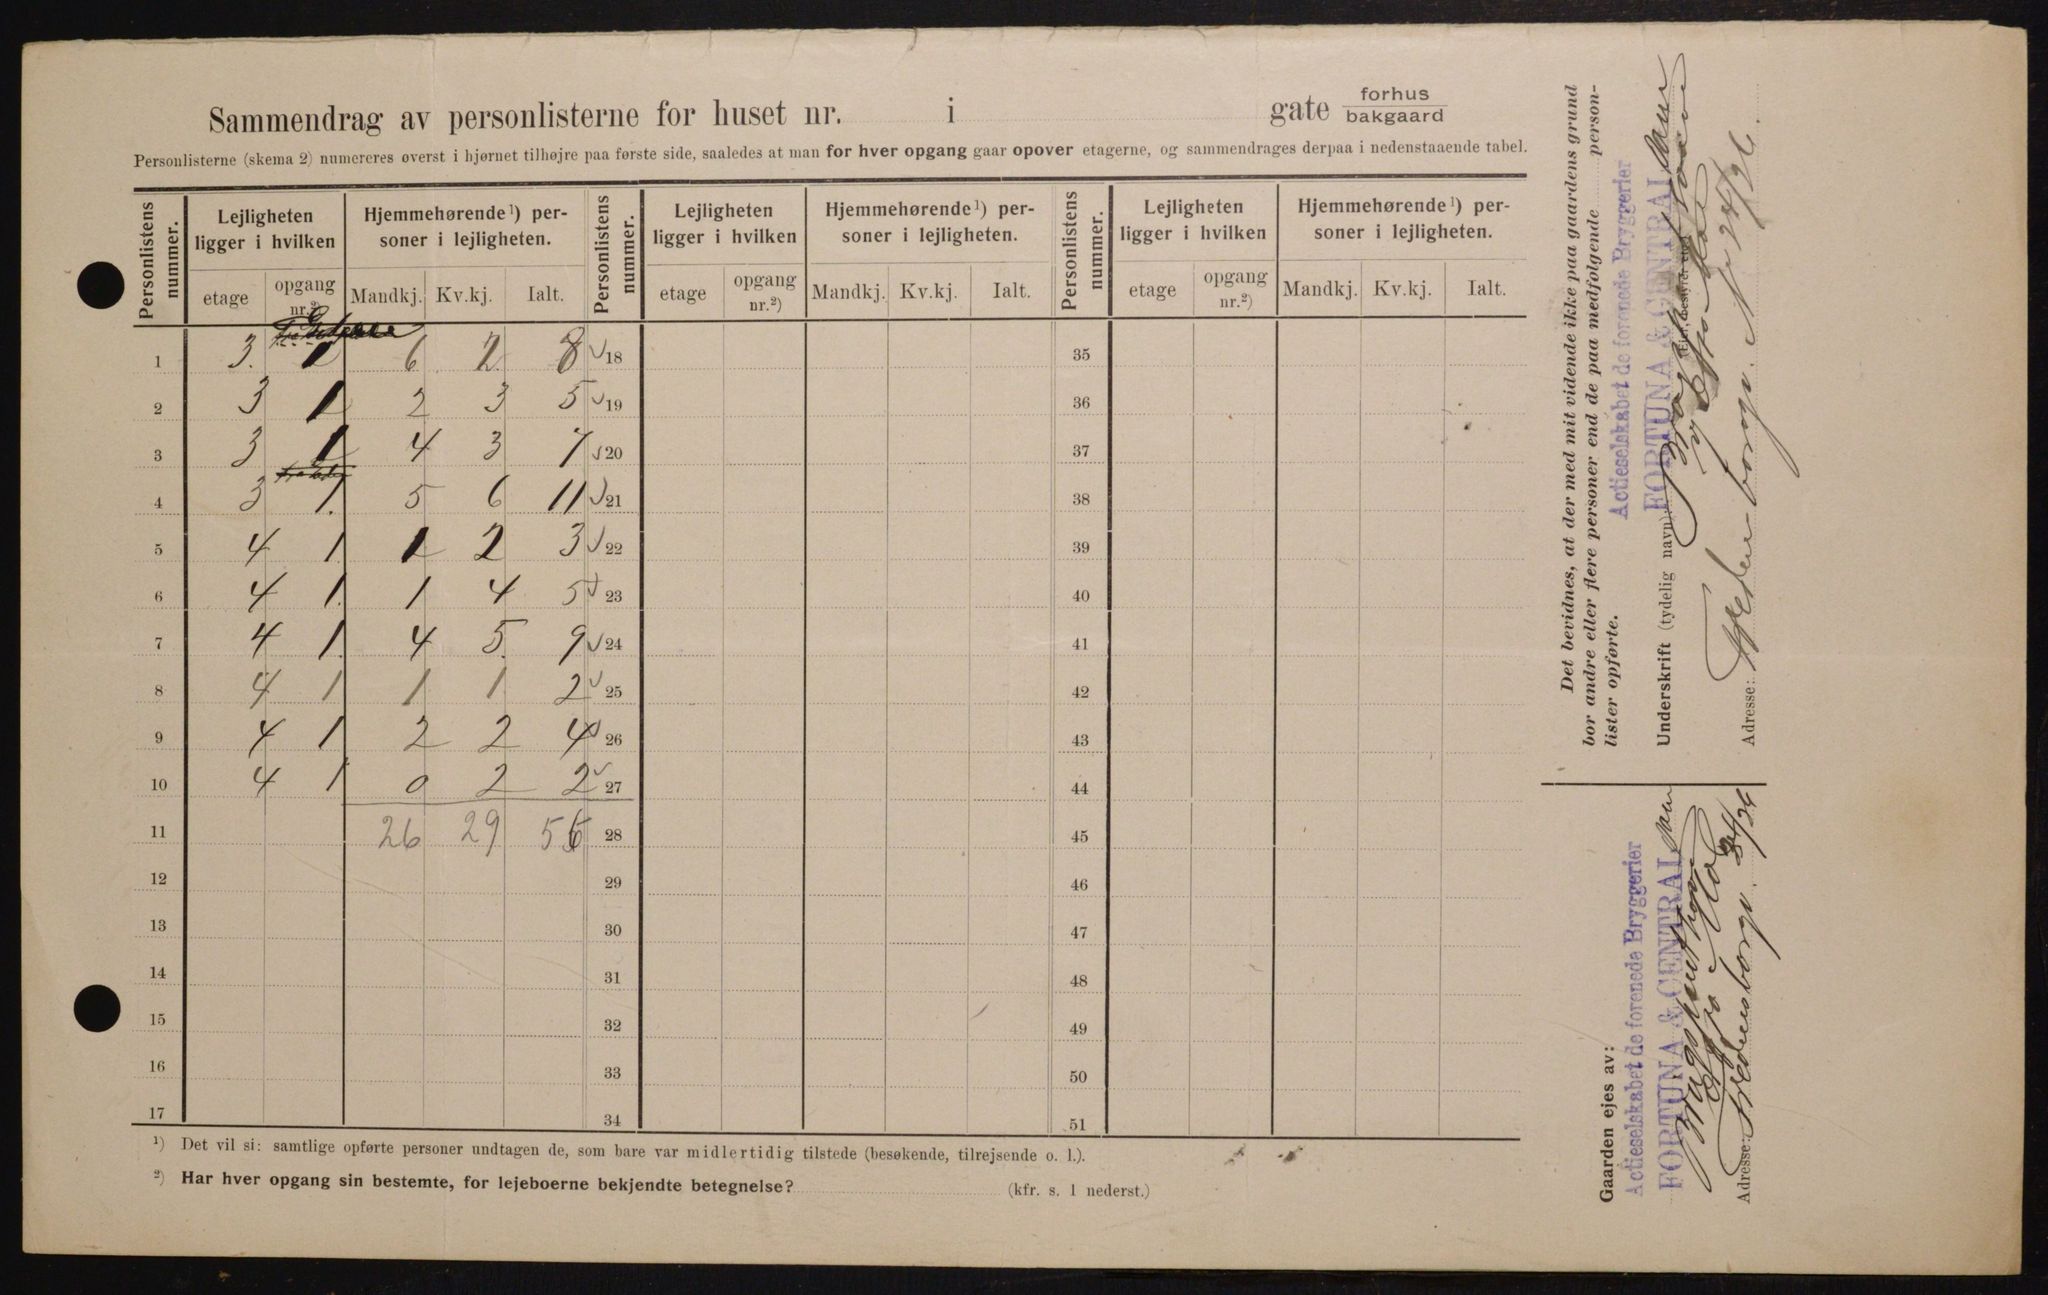 Sammendrag av personlisterne for huset nr. i gate forhus bakgaard
Personlisterne (skema 2) numereres øverst i hjørnet tilhøjre paa første side, saaledes at man for hver opgang gaar opover etagerne, og sammendrages derpaa i nedenstaaende tabel.
Personlistens nummer. Lejligheten ligger i hvilken Hjemmehørende ¹) personer i lejligheten. Personlistens nummer. Lejligheten ligger i hvilken Hjemmehørende ¹) personer i lejligheten. Personlistens nummer. Lejligheten ligger i hvilken Hjemmehørende ¹) personer i lejligheten.
etage opgang nr.²) Mandkj. Kv.kj. Ialt. etage opgang nr.²) Mandkj. Kv.kj. Ialt. etage opgang nr.²) Mandkj. Kv.kj. Ialt.
1 3. 1 6 2 8 18 35
2 3 1 2 3 5 19 36
3 3 1 4 3 7 20 37
4 3 1. 5 6 11 21 38
5 4 1 1 2 3 22 39
6 4 1. 1 4 5 23 40
7 4 1. 4 5. 9 24 41
8 4 1 1 1 2 25 42
9 4 1 2 2 4 26 43
10 4 1 0 2 2 27 44
11 26 29 28 45
12 29 46
13 30 47
14 31 48
15 32 49
16 33 50
17 34 51
¹) Det vil si: samtlige opførte personer undtagen de, som bare var midlertidig tilstede (besøkende, tilrejsende o. l.).
²) Har hver opgang sin bestemte, for lejeboerne bekjendte betegnelse? (kfr. s. 1 nederst.)
Det bevidnes, at der med mit vidende ikke paa gaardens grund
bor andre eller flere personer end de paa medfølgende person-
lister opførte.
Actieselskabet de forenede Bryggerier
FORTUNA & CENTRAL
Underskrift (tydelig navn):
(Eier, bestyrer etc.)
Adresse: Fredensborgv. 24/26.
Gaarden ejes av:
Actieselskabet de forenede Bryggerier
FORTUNA & CENTRAL
Adresse: Fredensborgv. 24/26